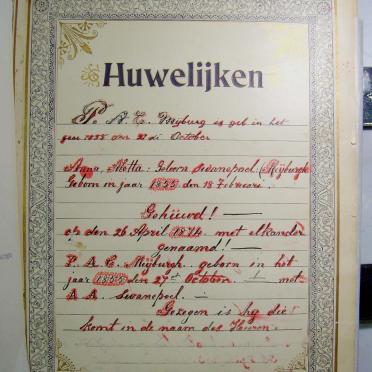 Huwelijken
P. A. C. Meyburg is geb in het
jaar 1855 den 27 di October
Anna Aletta: Geboren Swanepoel: Meijburgh
Geboren in jaar 1855 den 18 Februarie.
Gehuwd! —
op den 26 April 1874 met elkander
genaamd! —
P. A. C. Meijburgh geboren in het
jaar 1855 den 27st October — met
A. A. Swanepoel. —
Gezegen is hy die
komt in de naam des Heeren